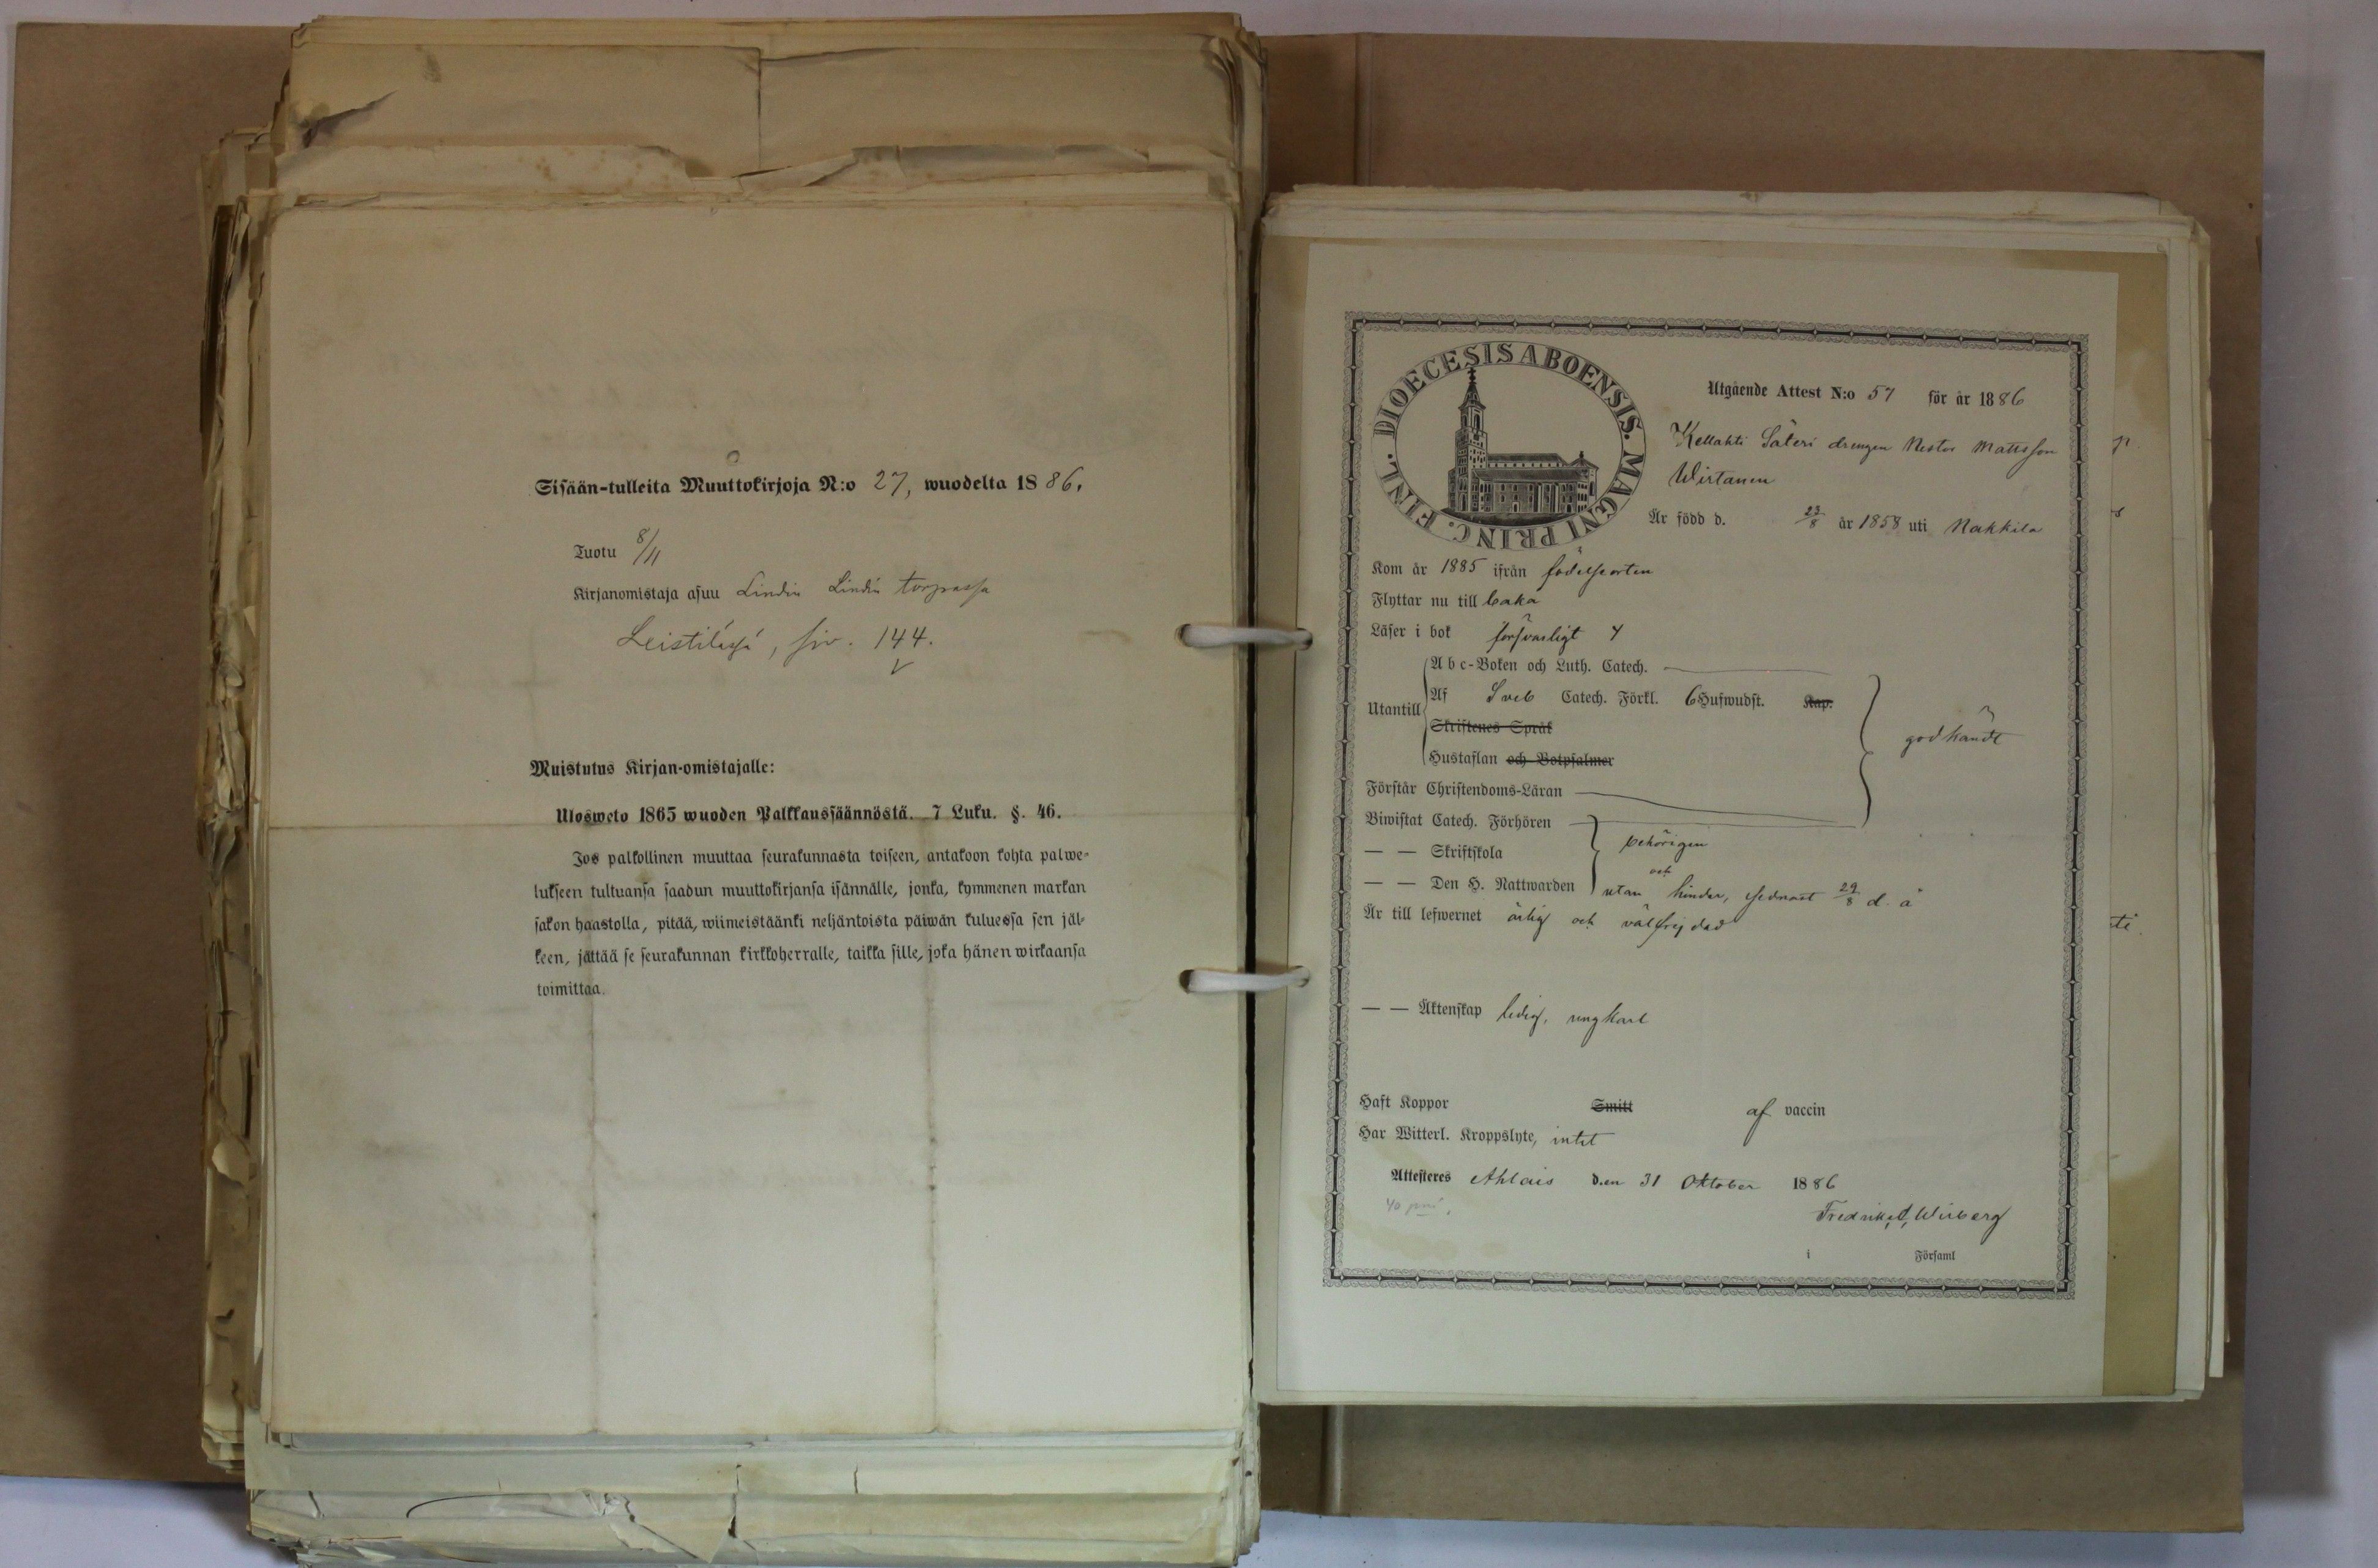 Sisään-tulleita Muuttokirjoja N:o 27, wuodelta 1886.
Tuotu 8/11
Kirjanomistaja asuu Lindin Lindin torpassa
Leistilässä, siv. 144.
Muistutus Kirjan-omistajalle:
Ulosweto 1865 wuoden Palkkaussäännöstä. 7 Luku. §. 46.
Jos palkollinen muuttaa seurakunnasta toiseen, antakoon kohta palwe-
lukseen tultuansa saadun muuttokirjansa isännälle, jonka, kymmenen markan
sakon haastolla, pitää, wiimeistäänki neljäntoista päiwän kuluessa sen jäl-
keen, jättää se seurakunnan kirkkoherralle, taikka sille, joka hänen wirkaansa
toimittaa.
DIOECESIS ABOENSIS. MAGNI PRINC. FINL.
Utgående Attest N:o 57 för år 1886
Kellahti Säteri drengen Nestor Mattsson
Wirtanen
Är född d. 23/8 år 1858 uti Nakkila
Kom år 1885 ifrån födelseorten
Flyttar nu till baka
Läser i bok försvarligt
Utantill
A b c-Boken och Luth. Catech.
Af Sveb Catech. Förkl. 6 Hufwudst. Kap.
Skriftenes Språk
Hustaflan och Botpsalmer
godkändt
Förstår Christendoms-Läran
Biwistat Catech. Förhören
— — Skriftskola
behörigen
och
— — Den H. Nattwarden utan hinder, sednast 29/8 d. å
Är till lefwernet ärlig och välfrejdad
— — Äktenskap ledig, ungkarl
Haft Koppor Smitt af vaccin
Har Witterl. Kroppslyte, intet
Attesteres Ahlais den 31 Oktober 1886
40 pni.
Fredrik A. Wirberg
i Församl